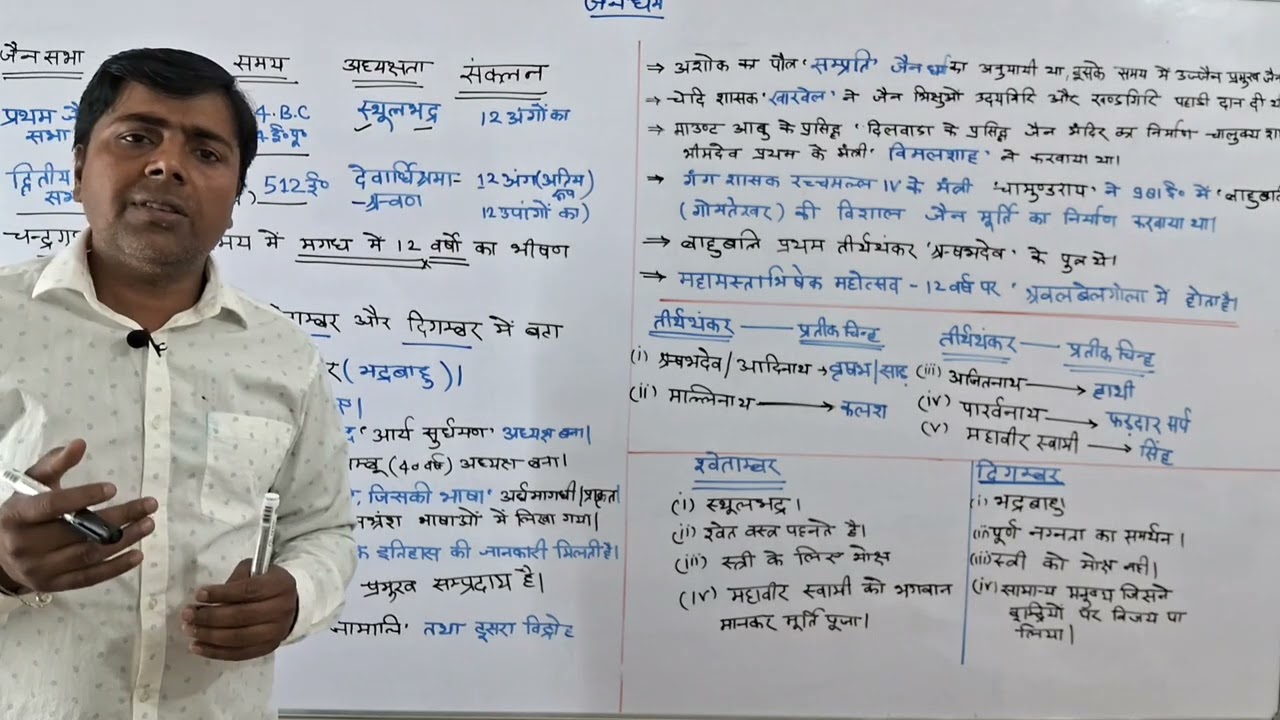 जैन धर्म
जैन सभा समय अध्यक्षता संकलन
प्रथम 4.B.C स्थूलभद्र 12 अंगों का
सभा ई॰पू॰
द्वितीय 512 ई॰ देवार्धिक्षमा- 12 अंग (अंतिम)
-श्रवण 12 उपांगों का)
समय में मगध में 12 वर्षों का भीषण
और दिगम्बर में बटा
(भद्रबाहु)।
'आर्य सुर्धमण' अध्यक्ष बना।
(40 वर्ष) अध्यक्ष बना।
जिसकी भाषा' अर्धमागधी/प्राकृत
भाषाओं में लिखा गया।
इतिहास की जानकारी मिलती है।
प्रमुख सम्प्रदाय है।
तथा दूसरा विद्रोह
→ अशोक का पौत्र 'सम्प्रति' जैन धर्म का अनुयायी था, इसके समय में उज्जैन प्रमुख जैन
→ चेदि शासक 'खारवेल' ने जैन भिक्षुओं उदयगिरि और खण्डगिरि पहाडी दान दी
→ माउण्ट आबु के प्रसिद्ध 'दिलवाडा के प्रसिद्ध जैन मंदिर का निर्माण चालुक्य
भीमदेव प्रथम के मंत्री 'विमलशाह' ने करवाया था।
→ गंग शासक रच्चमल्ल IV के मंत्री 'चामुण्डराय' ने 981 ई॰ में
(गोमतेश्वर) की विशाल जैन मूर्ति का निर्माण करवाया था।
→ बाहुबलि प्रथम तीर्थथंकर 'ऋषभदेव' के पुत्र थे।
→ महामस्ताभिषेक महोत्सव - 12 वर्ष पर 'श्रवलबेलगोला में होता है।
तीर्थथंकर — प्रतीक चिन्ह
(i) ऋषभदेव/आदिनाथ → वृषभ/सांड
(ii) माल्लिनाथ → कलश
तीर्थथंकर — प्रतीक चिन्ह
(iii) अजितनाथ → हाथी
(iv) पार्श्वनाथ → सर्प
(v) महावीर स्वामी → सिंह
श्वेताम्बर
(i) स्थूलभद्र।
(ii) श्वेत वस्त्र पहनते है।
(iii) स्त्री के लिए मोक्ष
(iv) महावीर स्वामी को भगवान
मानकर मूर्ति पूजा।
दिगम्बर
(i) भद्रबाहु
(ii) पूर्ण नग्नता का समर्थन।
(iii) स्त्री को मोक्ष नहीं।
(iv) सामान्य मनुष्य जिसने
इन्द्रियों पर विजय पा
लिया।